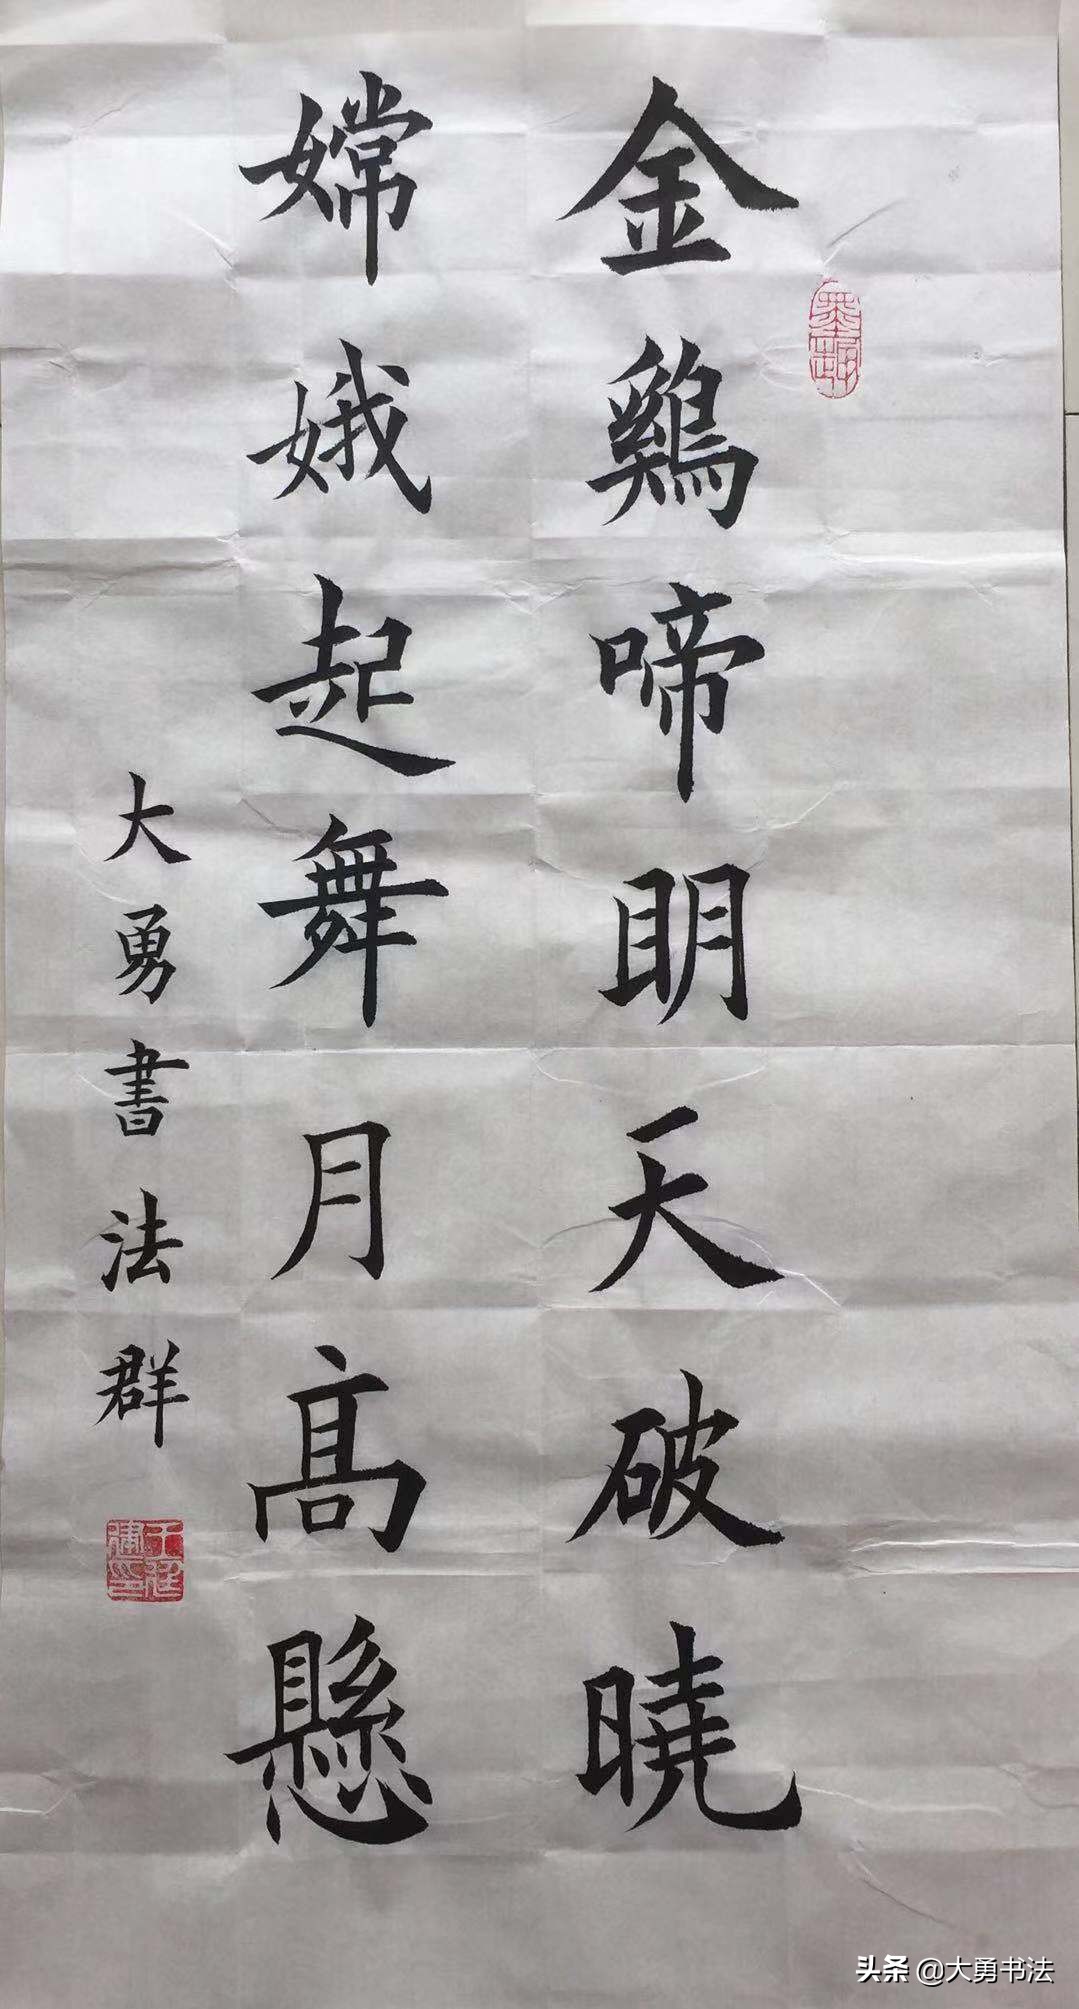 金鷄啼明天破曉
嫦娥起舞月高懸
大勇書法群
头条 @大勇书法